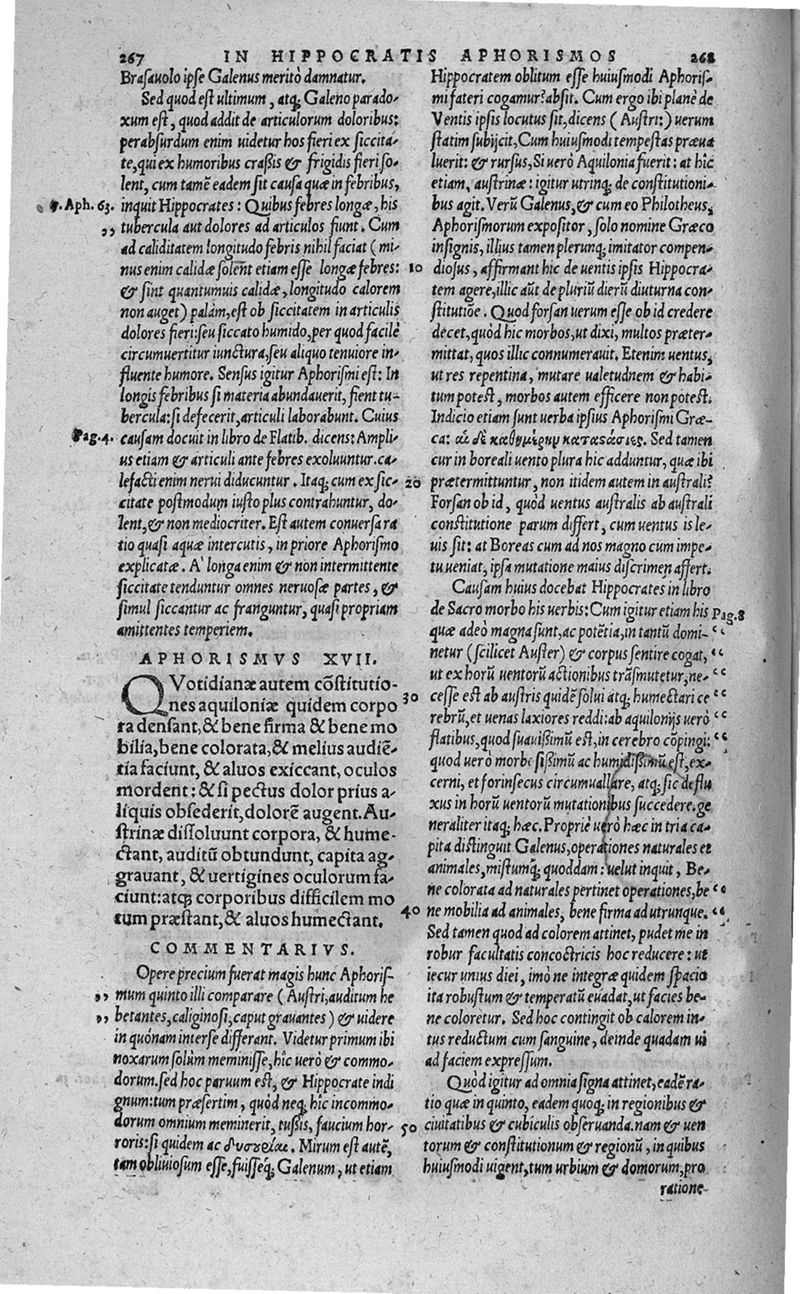 267 IN HIPPOCRATIS APHORISMOS 268
Brasauolo ipse Galenus meritò damnatur.
Sed quod est ultimum, atq; Galeno parado-
xum est, quod addit de articulorum doloribus:
perabsurdum enim uidetur hos fieri ex siccita-
te, qui ex humoribus crassis & frigidis fieri so-
lent, cum tamē eadem sit causa quæ in febribus,
Aph. 63. inquit Hippocrates: Quibus febres longæ, his
,, tubercula aut dolores ad articulos fiunt. Cum
ad caliditatem longitudo febris nihil faciat (mi-
nus enim calidæ solent etiam esse longæ febres:
& sint quantumuis calidæ, longitudo calorem
non auget) palàm, est ob siccitatem in articulis
dolores fieri: seu siccato humido, per quod facilè
circumuertitur iunctura, seu aliquo tenuiore in-
fluente humore. Sensus igitur Aphorismi est: In
longis febribus si materia abundauerit, fient tu-
bercula: si defecerit, articuli laborabunt. Cuius
Pag. 4. causam docuit in libro de Flatib. dicens: Ampli-
us etiam & articuli ante febres exoluuntur. ca-
lefacti enim nerui diducuntur. Itaq; cum ex sic-
citate postmodum iusto plus contrahuntur, do-
lent, & non mediocriter. Est autem conuersa ra
tio quasi aquæ intercutis, in priore Aphorismo
explicatæ. A' longa enim & non intermittente
siccitate tenduntur omnes neruosæ partes, &
simul siccantur ac franguntur, quasi propriam
amittentes temperiem.
APHORISMVS XVII.
QVotidianæ autem cōstitutio-
nes aquiloniæ quidem corpo
ra densant, & bene firma & bene mo
bilia, bene colorata, & melius audiē-
tia faciunt, & aluos exiccant, oculos
mordent: & si pectus dolor prius a-
liquis obsederit, dolorē augent. Au-
strinæ dissoluunt corpora, & hume-
ctant, auditū obtundunt, capita ag-
grauant, & uertigines oculorum fa-
ciunt: atq; corporibus difficilem mo
tum præstant, & aluos humectant.
COMMENTARIVS.
Opere precium fuerat magis hunc Aphoris-
,, mum quinto illi comparare (Austri, auditum he
,, betantes, caliginosi, caput grauantes) & uidere
in quónam inter se differant. Videtur primum ibi
noxarum solùm meminisse, hîc uerò & commo-
dorum. sed hoc paruum est, & Hippocrate indi
gnum: tum præsertim, quòd neq; hîc incommo-
dorum omnium meminerit, tussis, faucium hor-
roris: si quidem ac δυσουρίαι. Mirum est autē,
tam obliuiosum esse, fuisseq; Galenum, ut etiam
Hippocratem oblitum esse huiusmodi Aphoris-
mi fateri cogamur? absit. Cum ergo ibi planè de
Ventis ipsis locutus sit, dicens (Austri:) uerum
statim subijcit, Cum huiusmodi tempestas præua
luerit: & rursus, Si uerò Aquilonia fuerit: at hîc
etiam, austrinæ: igitur utrinq; de constitutioni-
bus agit. Verū Galenus, & cum eo Philotheus,
Aphorismorum expositor, solo nomine Græco
insignis, illius tamen plerunq; imitator compen-
10 diosus, affirmant hic de uentis ipsis Hippocra-
tem agere, illic aūt de pluriū dierū diuturna con-
stitutiōe. Quod forsan uerum esse ob id credere
decet, quòd hic morbos, ut dixi, multos præter-
mittat, quos illic connumerauit. Etenim uentus,
ut res repentina, mutare ualetudnem & habi-
tum potest, morbos autem efficere non potest.
Indicio etiam sunt uerba ipsius Aphorismi Græ-
ca: αἱ δὲ καθημέρην κατασάσιες. Sed tamen
cur in boreali uento plura hic adduntur, quæ ibi
20 prætermittuntur, non itidem autem in australi?
Forsan ob id, quòd uentus australis ab australi
constitutione parum differt, cum uentus is le-
uis sit: at Boreas cum ad nos magno cum impe-
tu ueniat, ipsa mutatione maius discrimen affert.
Causam huius docebat Hippocrates in libro
de Sacro morbo his uerbis: Cum igitur etiam his Pag. 8
quæ adeò magna sunt, ac potētia, in tantū domi- “
netur (scilicet Auster) & corpus sentire cogat, “
ut ex horū uentorū actionibus trāsmutetur, ne- “
30 cesse est ab austris quidē solui atq; humectari ce “
rebrū, et uenas laxiores reddi: ab aquilonijs uerò “
flatibus, quod suauissimū est, in cerebro cōpingi: “
quod uerò morbosissimū ac humidissimū est, ex-
cerni, et forinsecus circumuallare, atq; sic deflu
xus in horū uentorū mutationibus succedere. ge
neraliter itaq; hæc. Propriè uerò hæc in tria ca-
pita distinguit Galenus, operationes naturales et
animales, mistumq; quoddam: uelut inquit, Be-
ne colorata ad naturales pertinet operationes, be “
40 ne mobilia ad animales, bene firma ad utrunque. “
Sed tamen quod ad colorem attinet, pudet me in
robur facultatis concoctricis hoc reducere: ut
iecur unius diei, imò ne integræ quidem spacio
ita robustum & temperatū euadat, ut facies be-
ne coloretur. Sed hoc contingit ob calorem in-
tus reductum cum sanguine, deinde quadam ui
ad faciem expressum.
Quòd igitur ad omnia signa attinet, eadē ra-
tio quæ in quinto, eadem quoq; in regionibus &
50 ciuitatibus & cubiculis obseruanda. nam & uen
torum & constitutionum & regionū, in quibus
huiusmodi uigent, tum urbium & domorum, pro
ratione